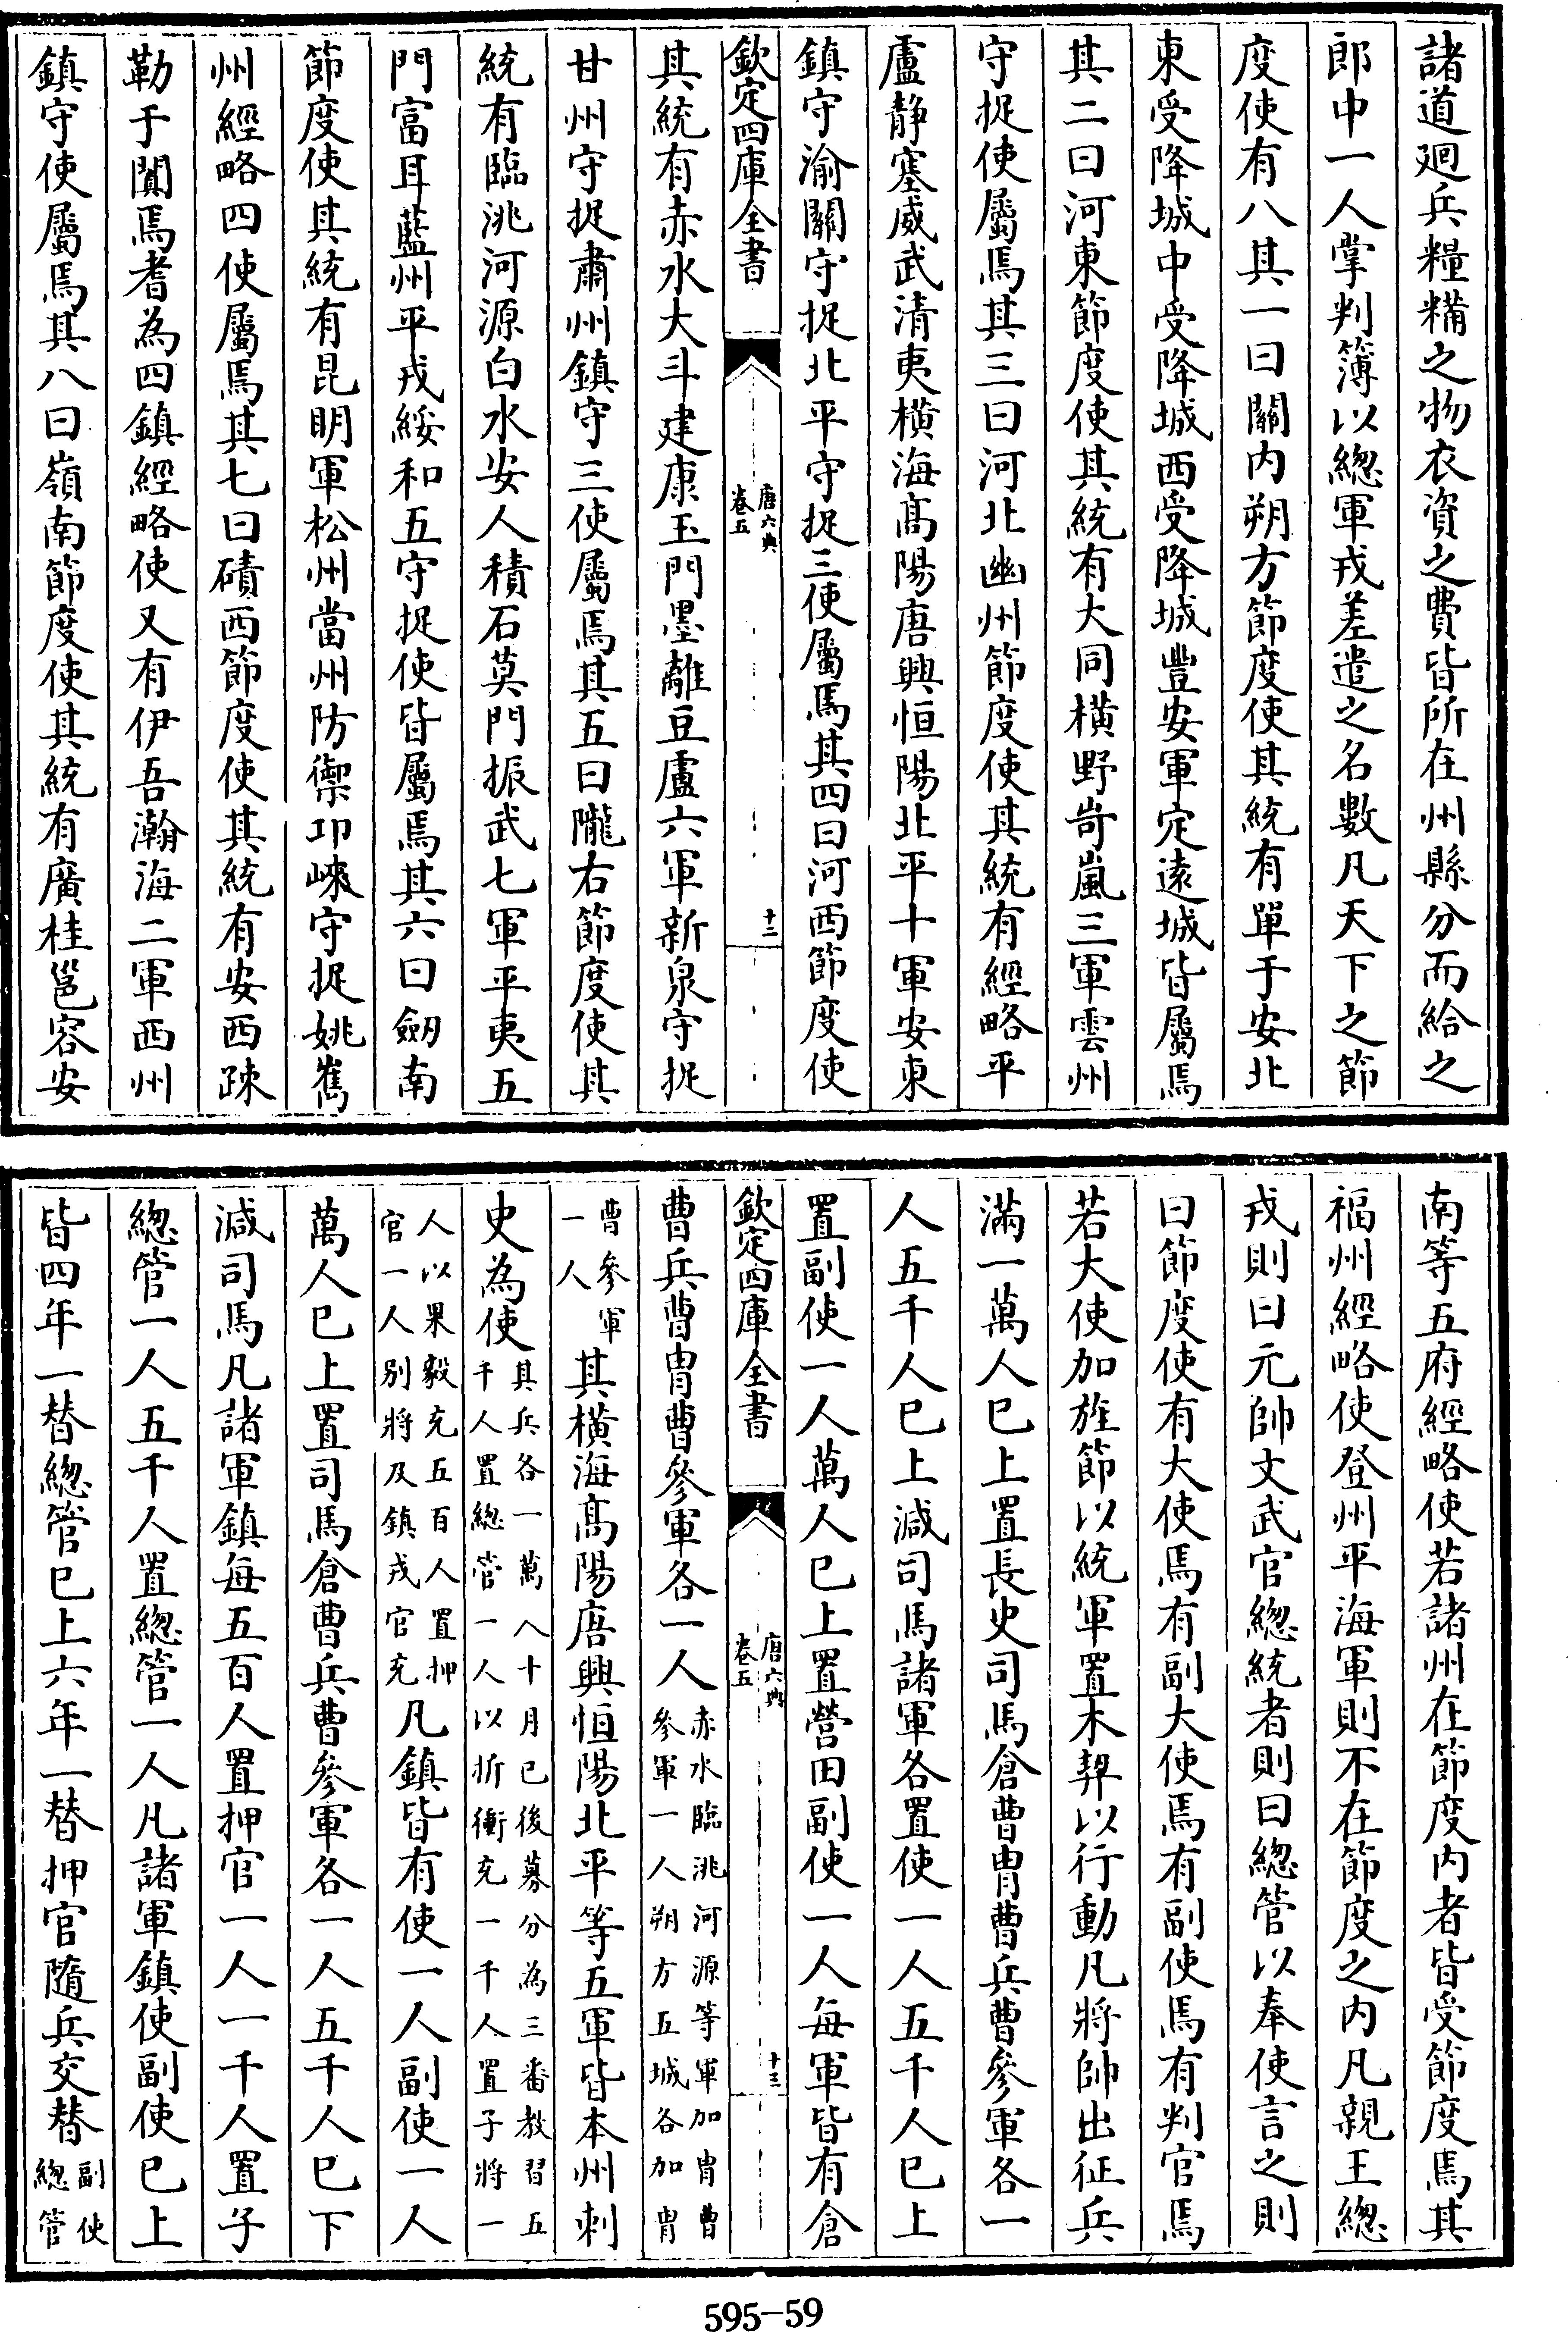 諸道廻兵糧糒之物衣資之費皆所在州縣分而給之
郎中一人掌判簿以總軍戎差遣之名數凡天下之節
度使有八其一曰關内朔方節度使其統有單于安北
東受降城中受降城西受降城豐安軍定逺城皆屬焉
其二曰河東節度使其統有大同橫野岢嵐三軍雲州
守捉使屬焉其三曰河北幽州節度使其統有經略平
盧靜塞威武清夷横海髙陽唐興恒陽北平十軍安東
鎮守渝關守捉北平守捉三使屬焉其四曰河西節度使
欽定四庫全書
唐六典
卷五
十二
其統有赤水大斗建康玉門墨離豆盧六軍新泉守捉
甘州守捉肅州鎮守三使屬焉其五曰隴右節度使其
統有臨洮河源白水安人積石莫門振武七軍平夷五
門富耳藍州平戎綏和五守捉使皆屬焉其六曰劒南
節度使其統有昆明軍松州當州防禦卭崍守捉姚嶲
州經略四使屬焉其七曰磧西節度使其統有安西疎
勒于闐焉耆為四鎮經略使又有伊吾瀚海二軍西州
鎮守使屬焉其八曰嶺南節度使其統有廣桂邕容安
南等五府經略使若諸州在節度内者皆受節度焉其
福州經略使登州平海軍則不在節度之内凡親王總
戎則曰元帥文武官總統者則曰總管以奉使言之則
曰節度使有大使焉有副大使焉有副使焉有判官焉
若大使加旌節以統軍置木契以行動凡將帥出征兵
滿一萬人已上置長史司馬倉曹胄曹兵曹參軍各一
人五千人已上減司馬諸軍各置使一人五千人已上
置副使一人萬人已上置營田副使一人每軍皆有倉
欽定四庫全書
唐六典
卷五
十三
曹兵曹胄曹參軍各一人赤水臨洮河源等軍加胄曹
參軍一人朔方五城各加胄
曹參軍
一人
其橫海髙陽唐興恒陽北平等五軍皆本州刺
史為使其兵各一萬人十月已後募分為三番教習五
千人置總管一人以折衝充一千人置子將一
人以果毅充五百人置押
官一人别將及鎮戎官充
凡鎮皆有使一人副使一人
萬人已上置司馬倉曹兵曹參軍各一人五千人已下
減司馬凡諸軍鎮每五百人置押官一人一千人置子
總管一人五千人置總管一人凡諸軍鎮使副使已上
皆四年一替總管已上六年一替押官隨兵交替副使
總管
595-59